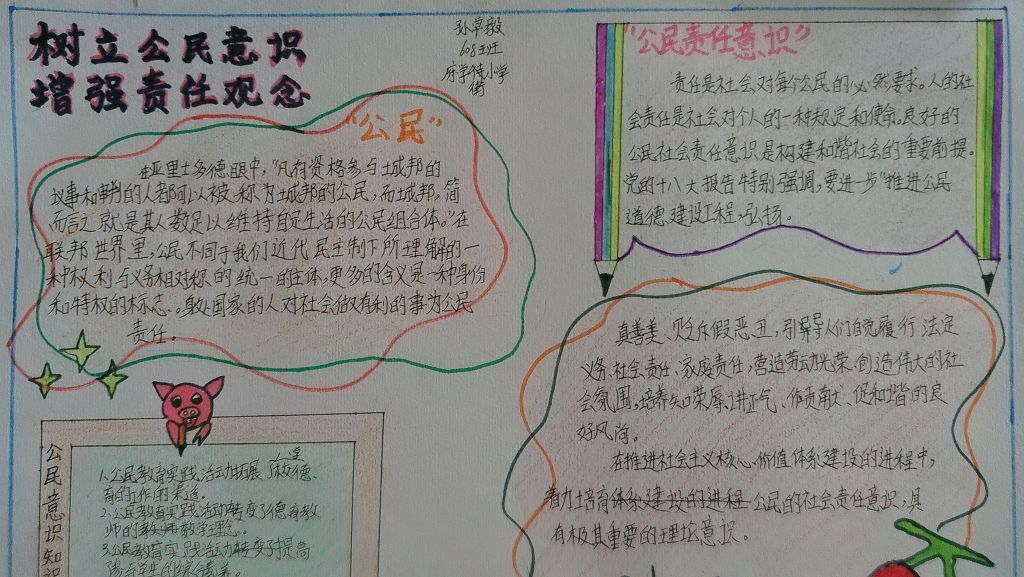 树立公民意识
增强责任观念
608班
小学
"公民"
在亚里士多德眼中,"凡有资格参与城邦的
议事和审判的人都可以被称为城邦的公民,而城邦,简
而言之就是其人数足以维持自足生活的公民组合体。"在
联邦世界里,公民不同于我们近代民主制下所理解的一
种权利与义务相对称的统一的主体,更多的含义是一种身份
和特权的标志。国家的人对社会做有利的事为公民
责任。
"公民责任意识"
责任是社会对每个公民的必然要求。人的社
会责任是社会对个人的一种规定和使命。良好的
公民社会责任意识是构建和谐社会的重要前提。
党的十八大报告特别强调,要进一步"推进公民
道德建设工程,弘扬。
真善美、贬斥假恶丑,引导人们自觉履行法定
义务、社会责任、家庭责任,营造劳动光荣、创造伟大的社
会氛围,培养知荣辱、讲正气、作贡献、促和谐的良
好风尚。
在推进社会主义核心价值体系建设的进程中,
着力培育体系建设的进程公民的社会责任意识,具
有极其重要的理论意识。
公民意识知识
1.公民教育实践活动拓展
有的工作的渠道。
2.公民教育实践活动转变了德育教
师的教师教学理念。
3.公民教育实践活动转变于提高